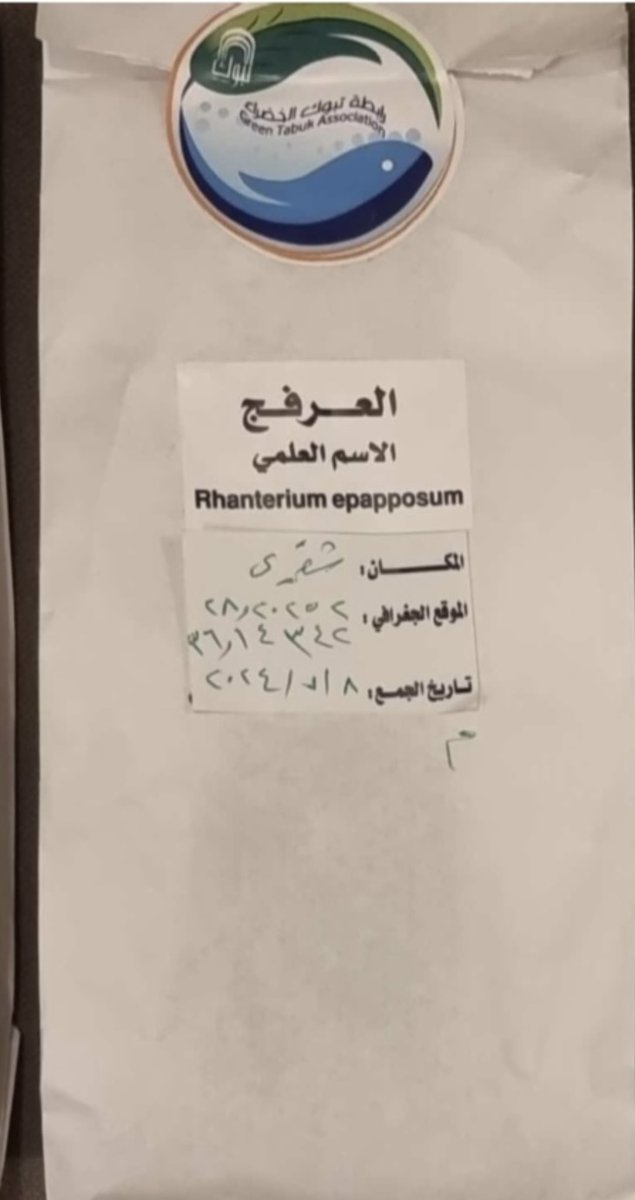 تبوك
رابطة تبوك الخضراء
Green Tabuk Association
العرفج
الاسم العلمي
Rhanterium epapposum
المكان: شقرى
الموقع الجغرافي: ٢٨,٢٠٢٥٢
٣٦,١٤٣٤٢
تاريخ الجمع: ٨/٥/٢٠٢٤
م